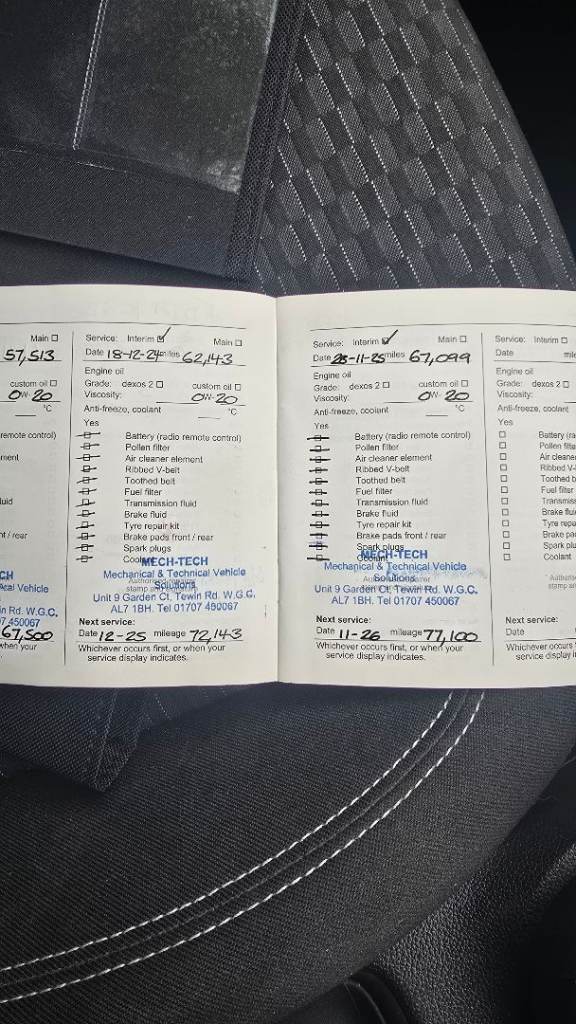 Main
57,513
custom oil
0W-20
°C
remote control)
ment
luid
nt / rear
CH
ical Vehicle
n Rd. W.G.C.
7 450067
67,500
when your
Service: Interim ✓ Main
Date 18-12-24 miles 62,143
Engine oil
Grade: dexos 2 custom oil
Viscosity: 0W-20
Anti-freeze, coolant °C
Yes
Battery (radio remote control)
Pollen filter
Air cleaner element
Ribbed V-belt
Toothed belt
Fuel filter
Transmission fluid
Brake fluid
Tyre repair kit
Brake pads front / rear
Spark plugs
Coolant
MECH-TECH
Mechanical & Technical Vehicle
Solutions
Unit 9 Garden Ct. Tewin Rd. W.G.C.
AL7 1BH. Tel 01707 450067
Next service:
Date 12-25 mileage 72,143
Whichever occurs first, or when your
service display indicates.
Service: Interim ✓ Main
Date 28-11-25 miles 67,099
Engine oil
Grade: dexos 2 custom oil
Viscosity: 0W-20
Anti-freeze, coolant °C
Yes
Battery (radio remote control)
Pollen filter
Air cleaner element
Ribbed V-belt
Toothed belt
Fuel filter
Transmission fluid
Brake fluid
Tyre repair kit
Brake pads front / rear
Spark plugs
Coolant
MECH-TECH
Mechanical & Technical Vehicle
Solutions
Unit 9 Garden Ct. Tewin Rd. W.G.C.
AL7 1BH. Tel 01707 450067
Next service:
Date 11-26 mileage 77,100
Whichever occurs first, or when your
service display indicates.
Service: Interim
Date mile
Engine oil
Grade: dexos 2
Viscosity:
Anti-freeze, coolant
Yes
Battery (ra
Pollen filte
Air cleane
Ribbed V-
Toothed b
Fuel filter
Transmiss
Brake flui
Tyre repa
Brake pa
Spark plu
Coolant
Next service:
Date
Whichever occurs
service display i